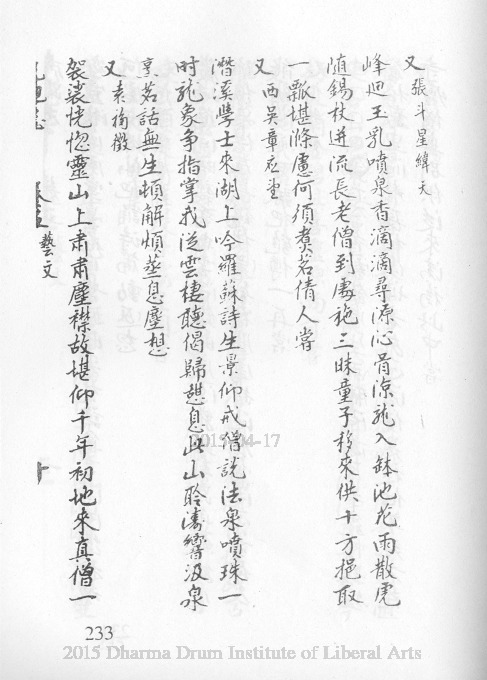 又 張斗星緯天
峰廻玉乳噴泉香滴滴尋源沁骨涼龍入鉢池花雨散虎
随錫杖迸流長老僧到處施三昧童子移來供十方挹取
一瓢堪滌慮何須煑茗倩人嘗
又 西吳章
潛溪學士來湖上吟羅蘇詩生景仰戒僧說法泉噴珠一
时龍象争指掌我從雲棲聽偈歸憇息此山聆濤響汲泉
烹茗話無生頓解煩蒸息塵想
又 袁
袈裟恍惚靈山上肅肅塵襟故堪仰千年初地來真僧一
藝文
十
2015-04-17
233
2015 Dharma Drum Institute of Liberal Arts